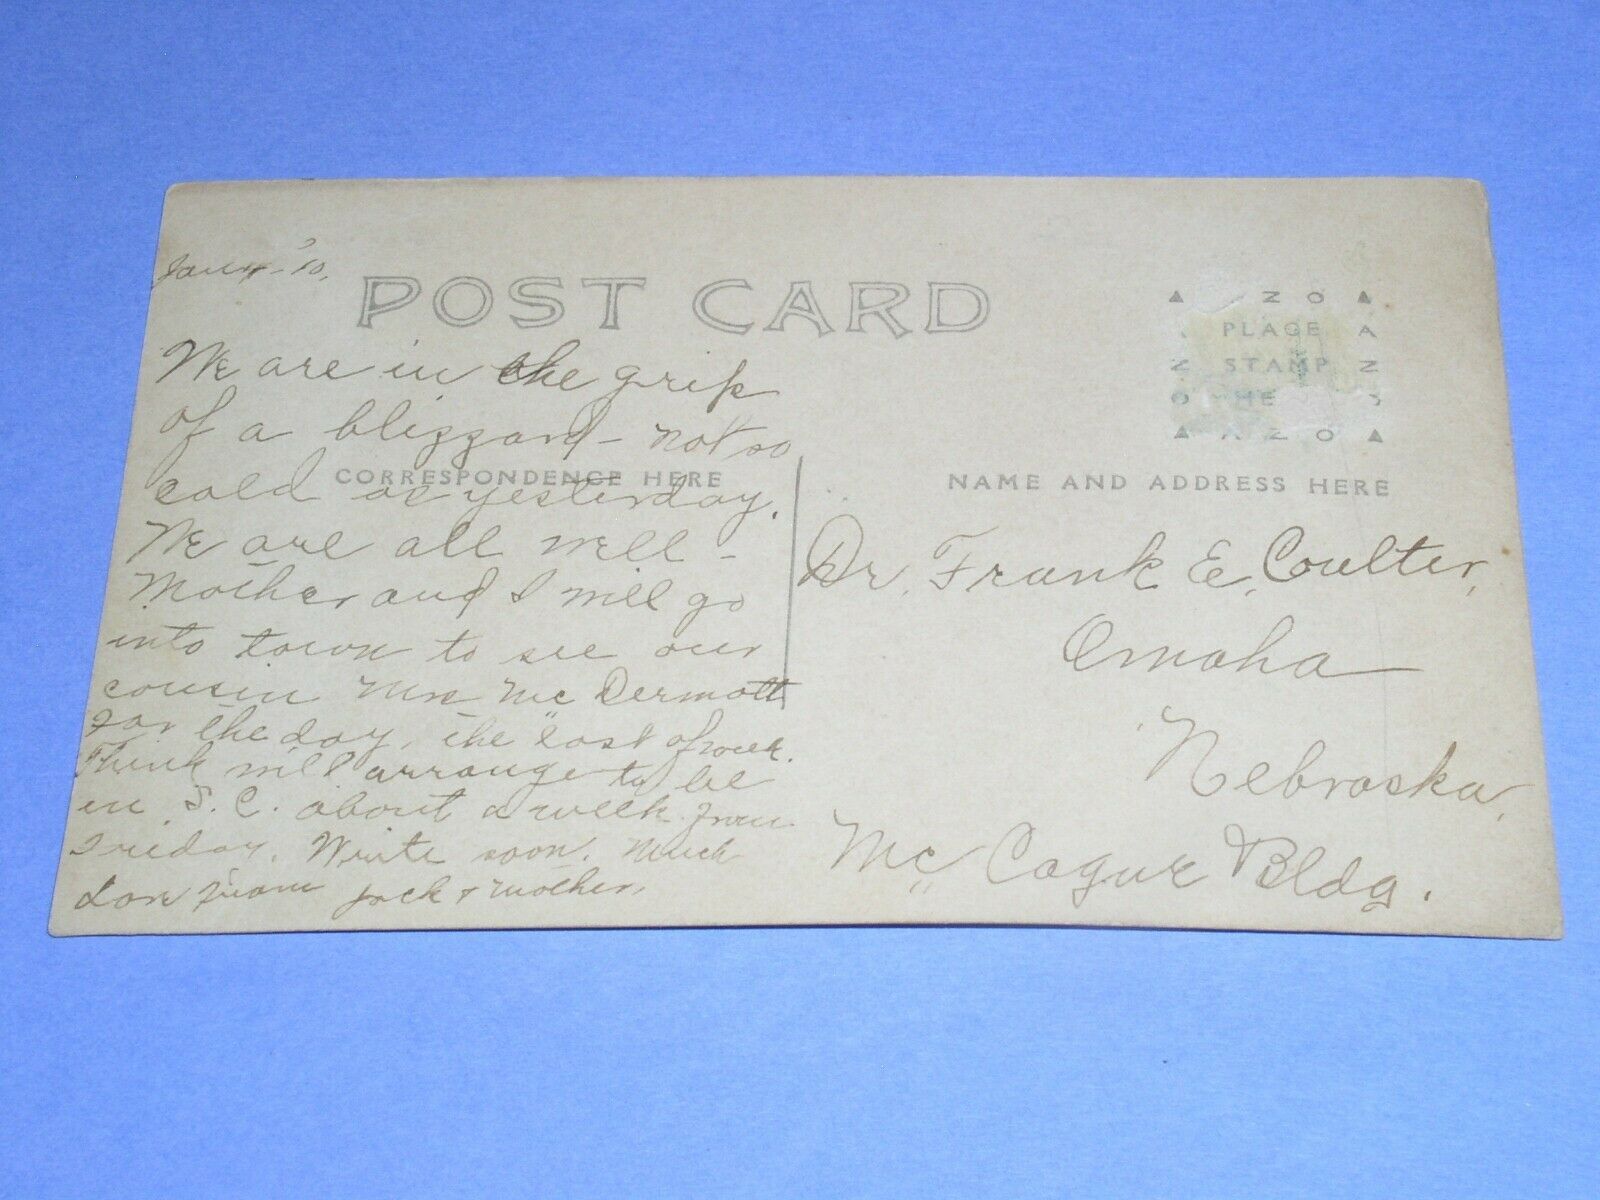 '10.
POST CARD
We are in the grip
of a blizzard - not so
cold as yesterday.
CORRESPONDENCE HERE
We are all well -
Mother and I will go
into town to see our
cousin Mrs Mc Dermott
for the day, the last of week.
Think will arrange to be
in S. C. about a week from
Friday. Write soon. Much
Love from Jack & Mother,
AZO
PLACE
STAMP
HERE
NAME AND ADDRESS HERE
Dr. Frank E. Coulter,
Omaha
Nebraska,
Mc Cague Bldg.